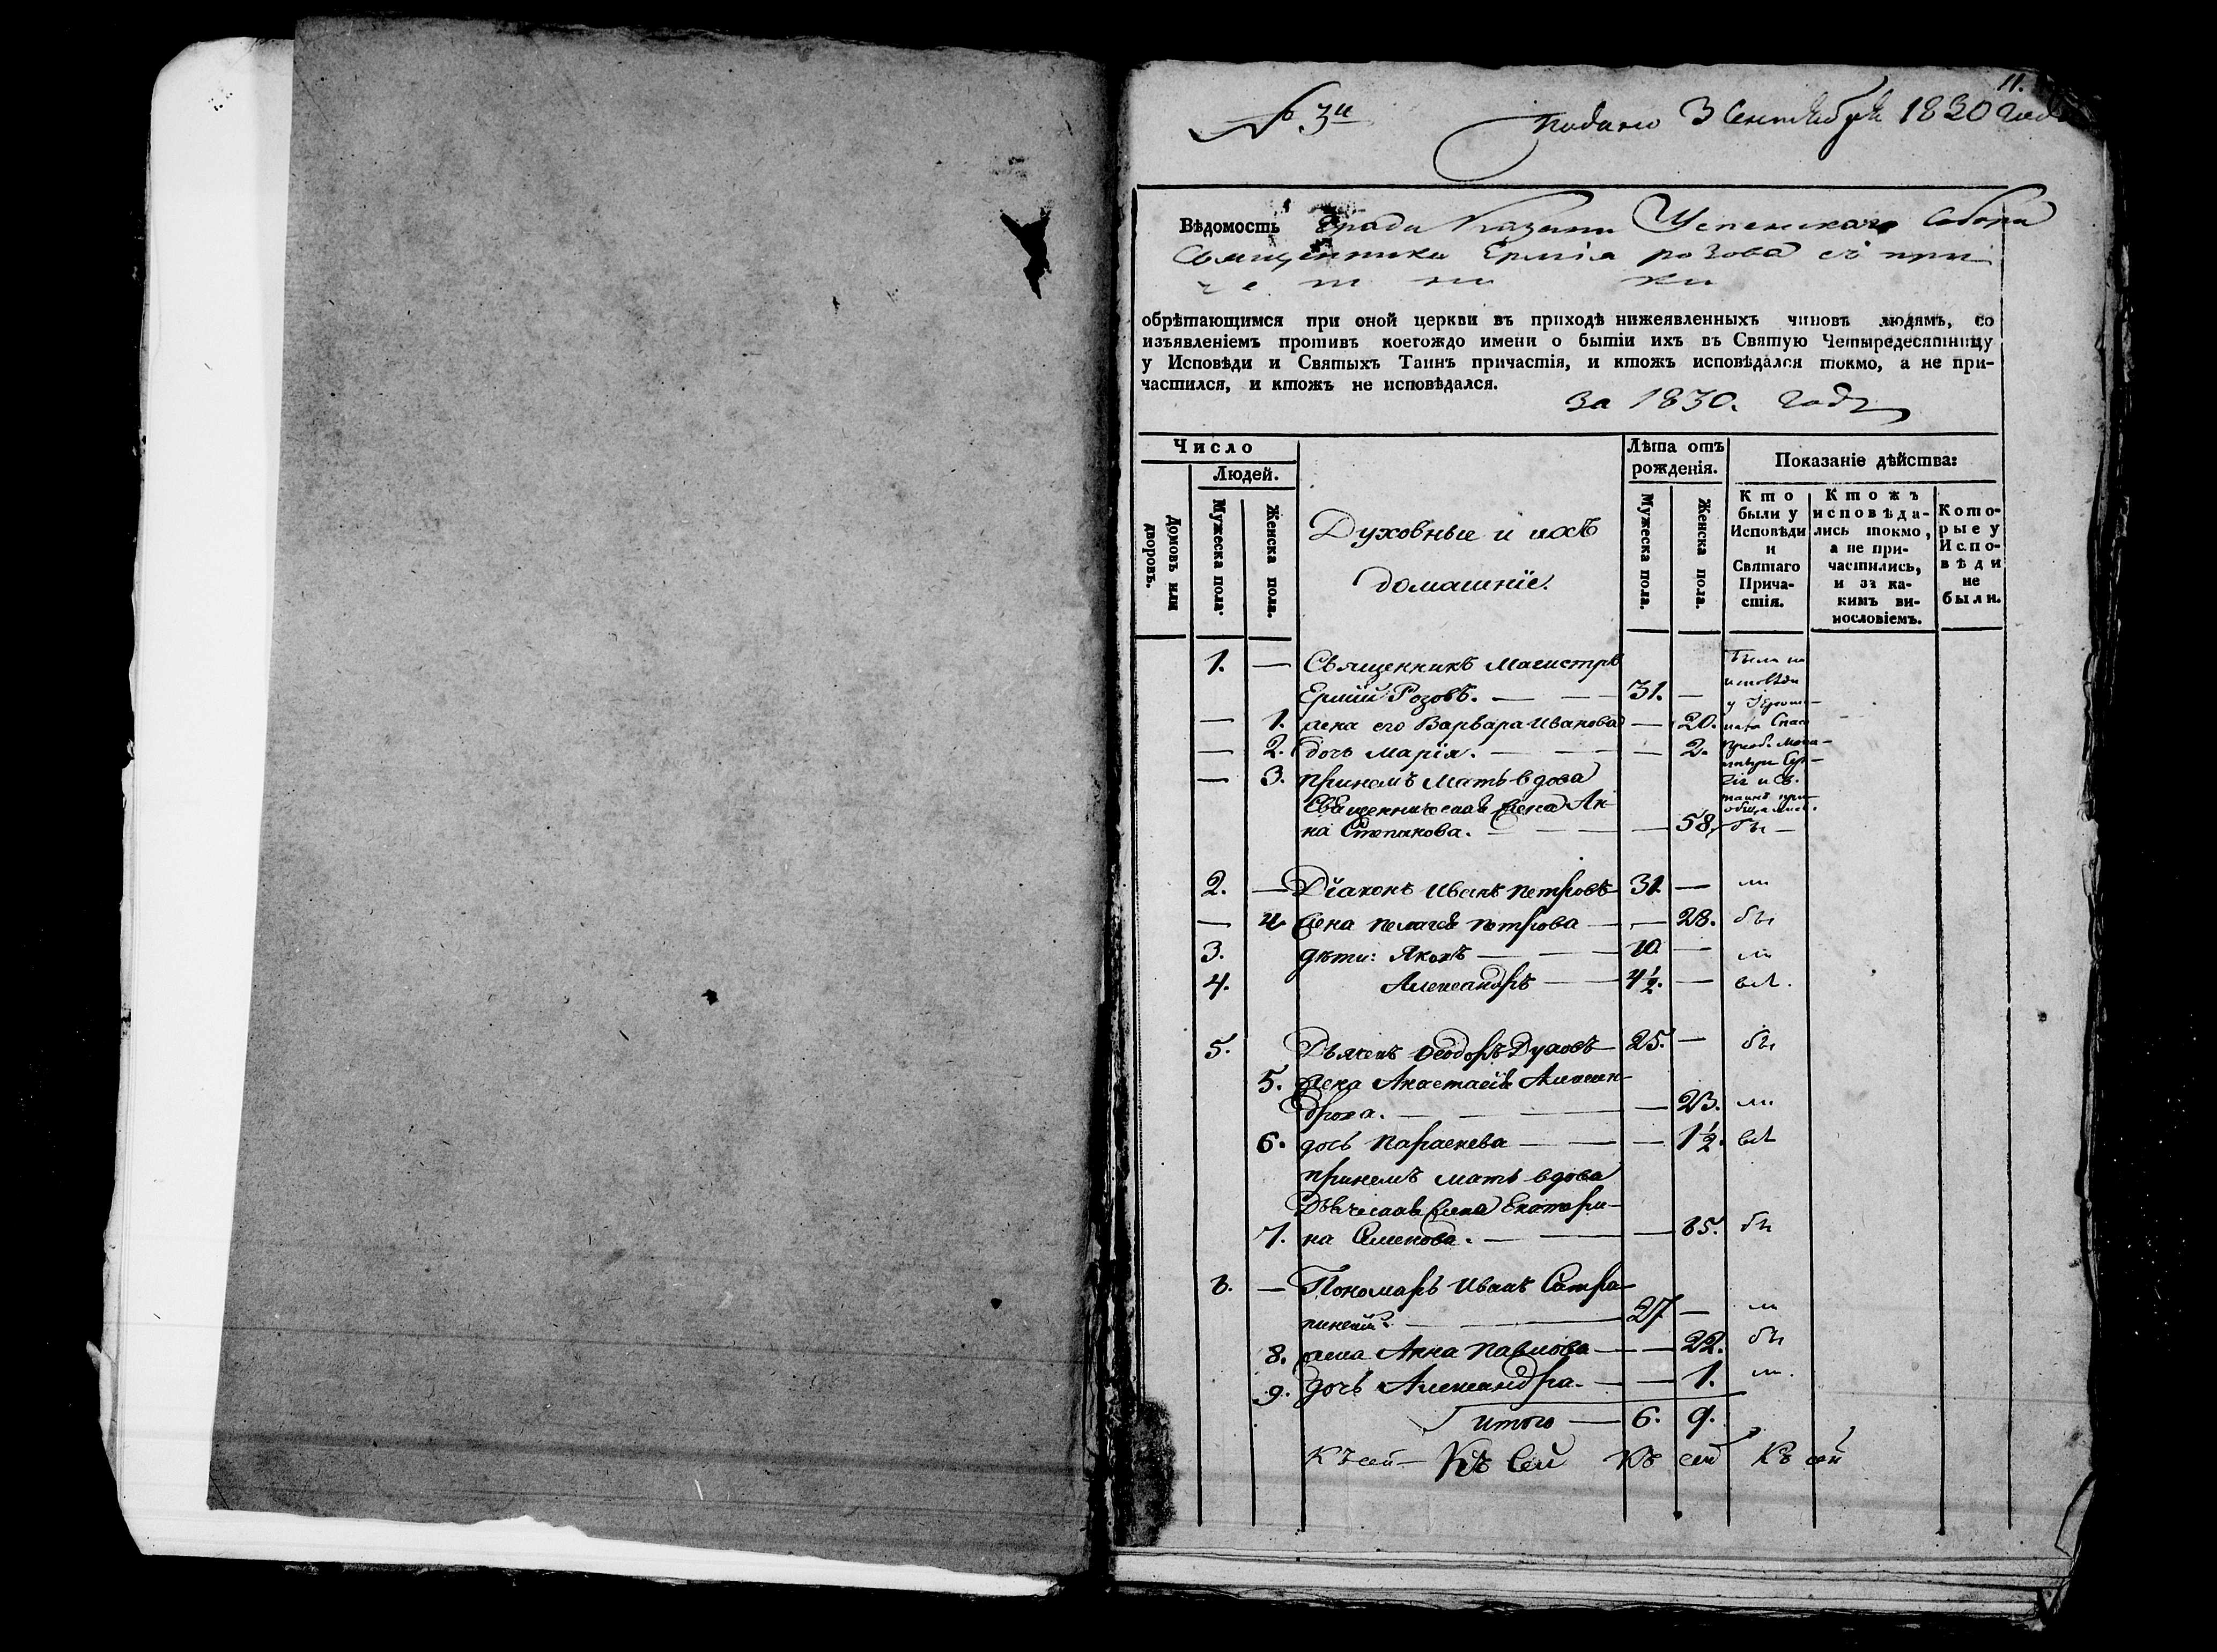 11.
№ 3й
Подано 3 Сентября 1830 года
Вѣдомость града Казани Успенскаго Собора
Священника Ермiя розова съ при
че т ни ки
обрѣтающимся при оной церкви въ приходѣ нижеявленныхъ чиновъ людямъ, со
изъявленiемъ противъ коегождо имени о бытiи ихъ въ Святую Четыредесятницу
у Исповѣди и Святыхъ Таинъ причастiя, и ктожъ исповѣдался токмо, а не при-
частился, и ктожъ не исповѣдался.
за 1830. годъ
Число
Людей.
Домовъ или дворовъ.
Мужеска пола.
Женска пола.
Духовные и ихъ
домашнiе.
Лѣта отъ
рожденiя.
Мужеска пола.
Женска пола.
Показанiе дѣйства:
Кто
были у
Исповѣди
и
Святаго
Прича-
стiя.
Ктожъ
исповѣда-
лись токмо,
а не при-
частились,
и за ка-
кимъ ви-
нословiемъ.
Кото-
рые у
Испо-
вѣди
не
были.
1. — Священникъ Магистръ
Ермiй Розовъ. — — 31. —
— 1. жена его Варвара Иванова — 20.
— 2. дочь Марiя. — — — 2.
— 3. принемъ мать вдова
Священническая жена Ан-
на Степанова. — — — 58. бы —
2. — Дiаконъ Иванъ Петровъ 31. — ли
— 4 жена Пелагея Петрова — — 28. бы
3. дѣти: Яковъ — — 10. — ли
4. Александръ — 4½. — всѣ.
5. Дьячекъ Ѳеодоръ Духовъ 25. — бы
5. жена Анастасiя Алексан-
дрова. — — — 23. ли
6. дочь Параскева — — 1½. всѣ
принемъ мать вдова
Дьяческая жена Екатери-
7. на Семенова. — — — 65. бы
6. — Пономарь Иванъ Сатра-
пинскiй. — 27 — ли
8. жена Анна Павлова — — 22. бы
9. дочь Александра. — — 1. ли.
Итого — 6. 9.
Къ сей — Къ Сей Къ сей Къ сей